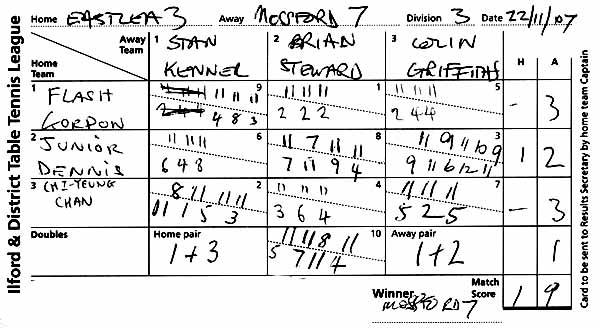 Ilford & District Table Tennis League
Home EASTLEA 3 Away MOSSFORD 7 Division 3 Date 22/11/07
Away Team 1 STAN KENNER 2 BRIAN STEWARD 3 COLIN GRIFFITHS H A
Home Team
1 FLASH GORDON 9 11 11 11 1 11 11 11 5 11 11 11 - 3
4 8 3 2 2 2 2 4 4
2 JUNIOR DENNIS 6 11 11 11 8 11 7 11 11 3 11 9 11 10 9 1 2
6 4 8 7 11 9 4 9 11 6 12 11
3 CHI-YEUNG CHAN 2 8 11 11 11 4 11 11 11 7 11 11 11 - 3
11 1 5 3 3 6 4 5 2 5
Doubles Home pair 1+3 10 11 11 8 11 Away pair 1+2 1
5 7 11 4
Winner MOSSFORD 7 Match Score 1 9
Card to be sent to Results Secretary by home team Captain